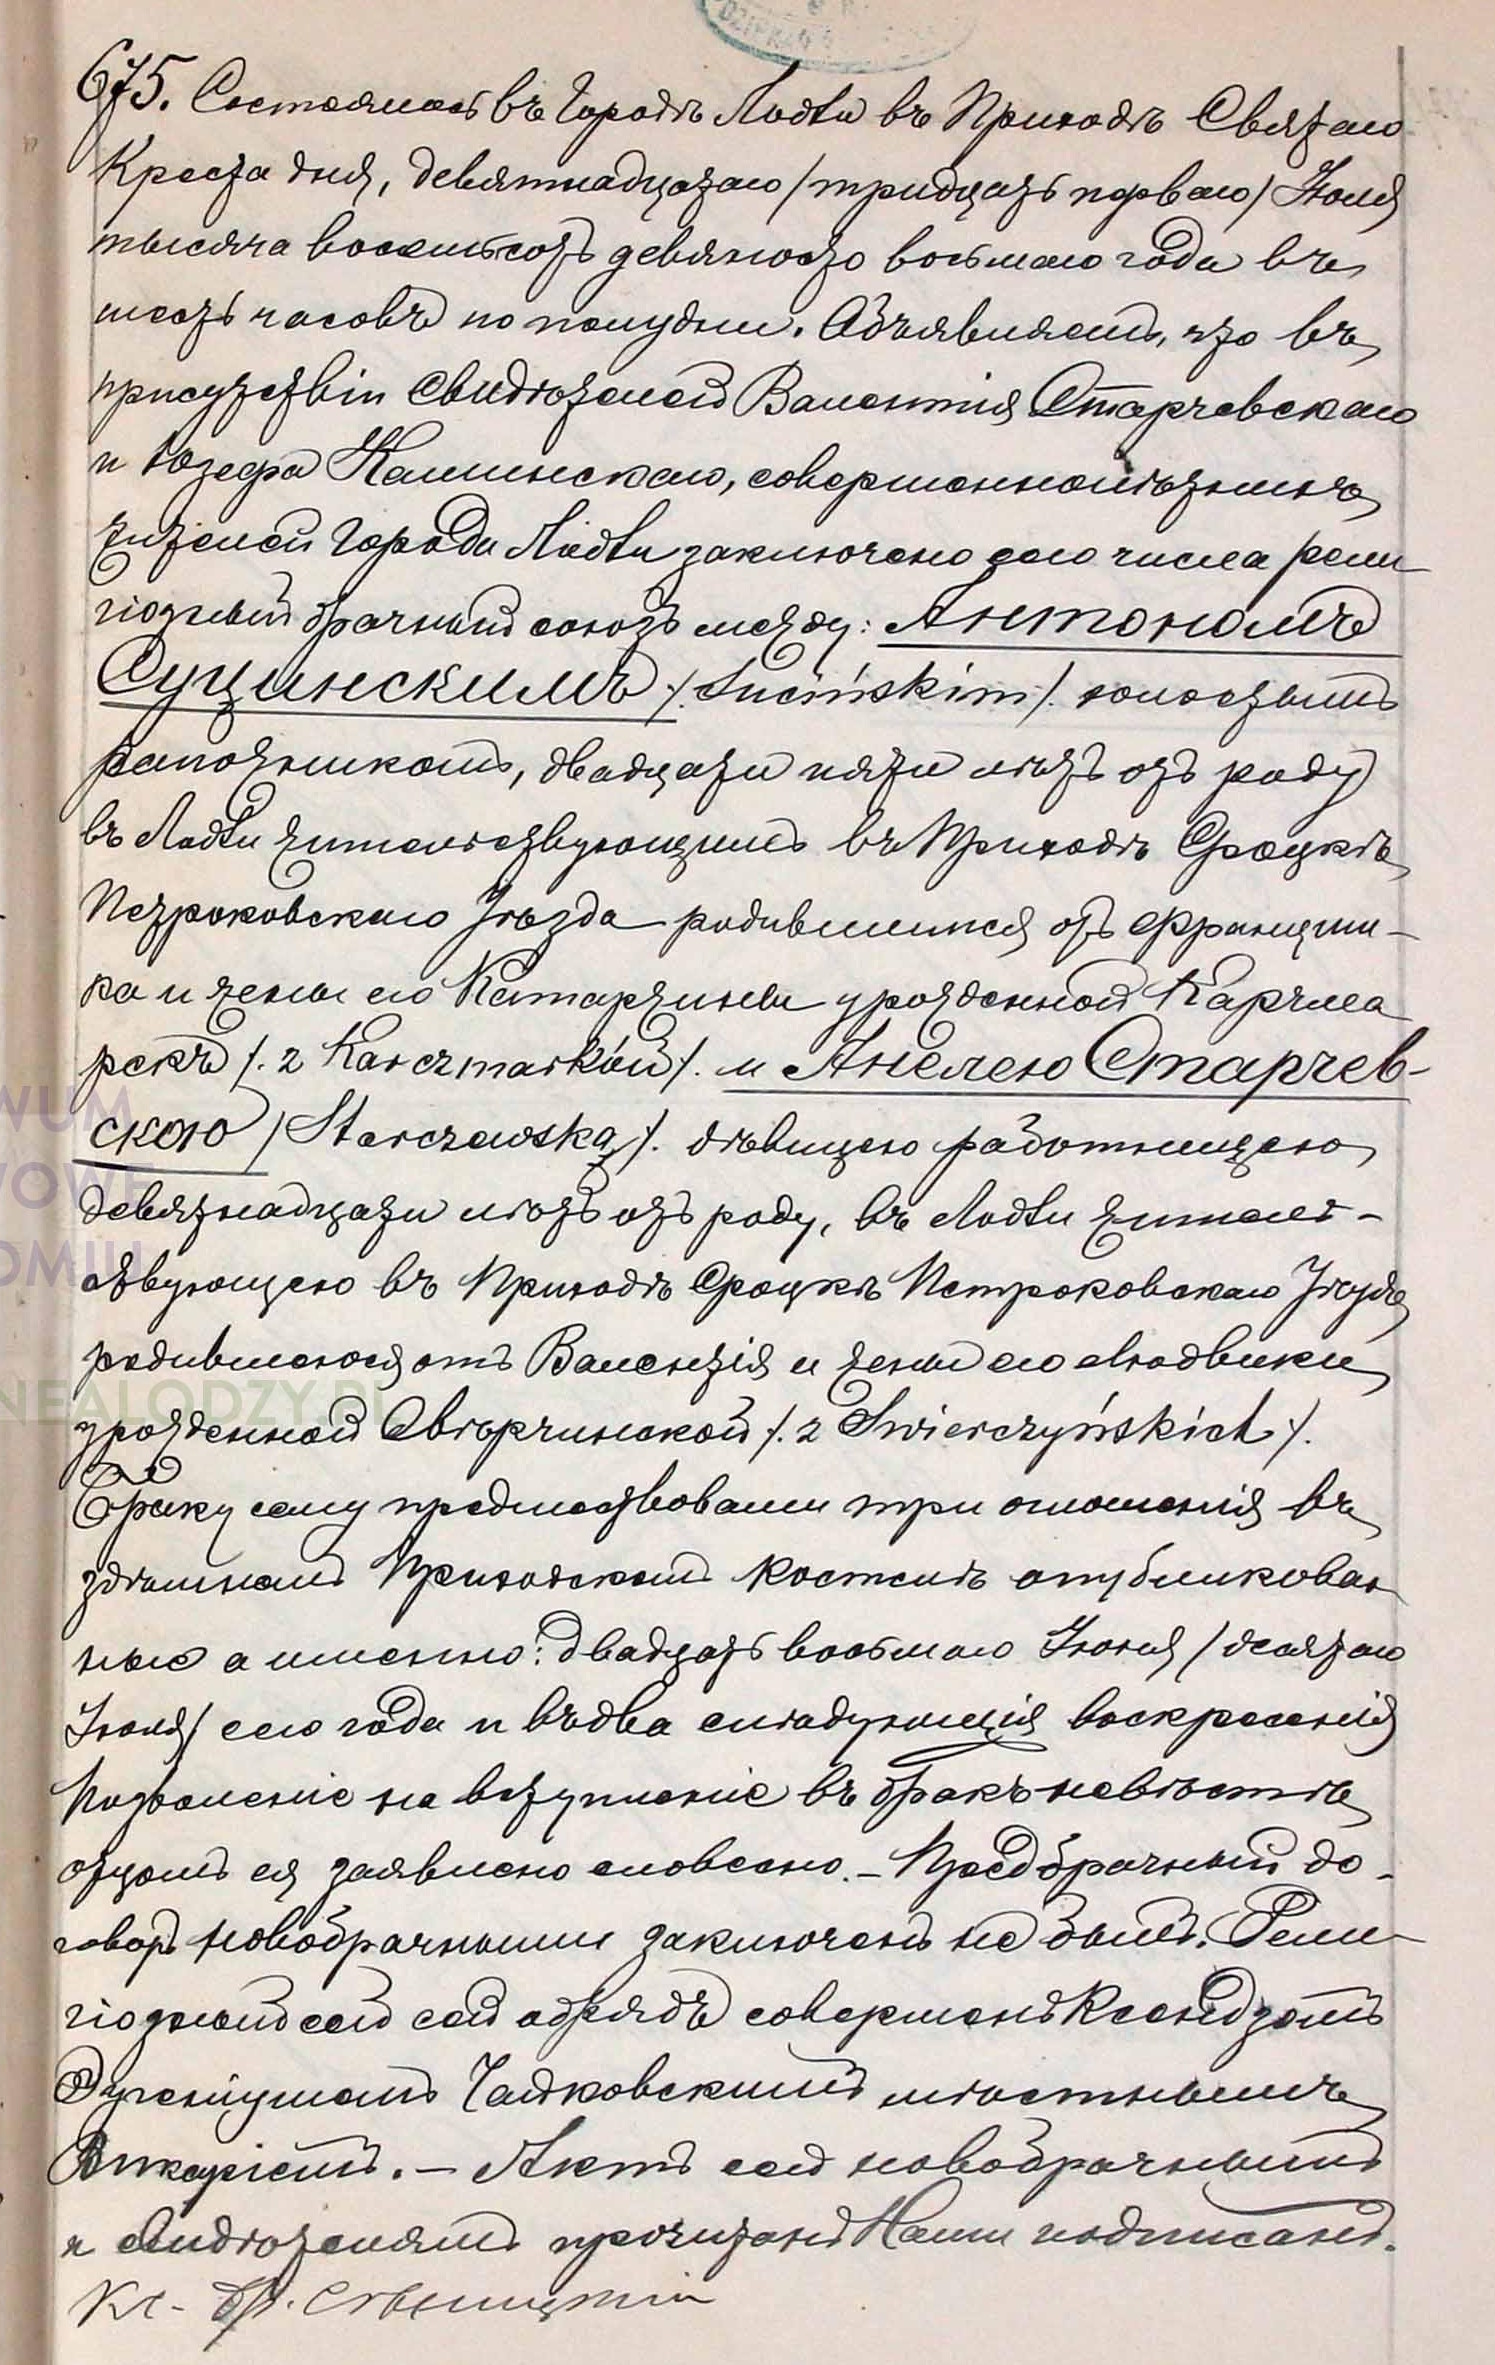 675. Состоялось въ Городѣ Лодзи въ Приходѣ Святаго
Креста дня, девятнадцатаго /тридцать перваго/ Іюля
тысяча восемьсотъ девяносто восьмаго года въ
шесть часовъ по полудни. Объявляемъ, что въ
присутствіи свидѣтелей Валентія Старчевскаго
и Юзефа Калинскаго, совершеннолѣтнихъ
жителей Города Лодзи заключено сего числа рели
гіозный брачный союзъ между: Антономъ
Суцинскимъ /. Sucińskim /. холостымъ
сапожникомъ, двадцати пяти лѣтъ отъ роду
въ Лодзи жительствующимъ въ Приходѣ Сроцкѣ
Петроковскаго Уѣзда родившимся отъ Франциш-
ка и жены его Катаржины урожденной Карчма
рекъ /. z Karczmarków /. и Анелею Старчев-
скою / Starczewską /. дѣвицею работницею
девятнадцати лѣтъ отъ роду, въ Лодзи житель-
ствующею въ Приходѣ Сроцкѣ Петроковскаго Уѣзда
родившеюся отъ Валентія и жены его Людвики
урожденной Свѣрчинской /. z Świerczyńskich /.
Браку сему предшествовали три оглашенія въ
здѣшнемъ Приходскомъ Костелѣ опубликован
ные а именно: двадцать восьмаго Іюня /десятаго
Іюля/ сего года и въ два слѣдующія воскресенія
Позволеніе на вступленіе въ бракъ невѣстѣ
отцомъ ея заявлено словесно. - Предбрачный до-
говоръ новобрачными заключенъ не былъ. Рели-
гіозный сей сей обрядъ совершенъ Ксендзомъ
Эугеніушемъ Чайковскимъ мѣстнымъ
Викаріемъ. - Актъ сей новобрачнымъ
и свидѣтелямъ прочитанъ Нами подписанъ.
Кс.